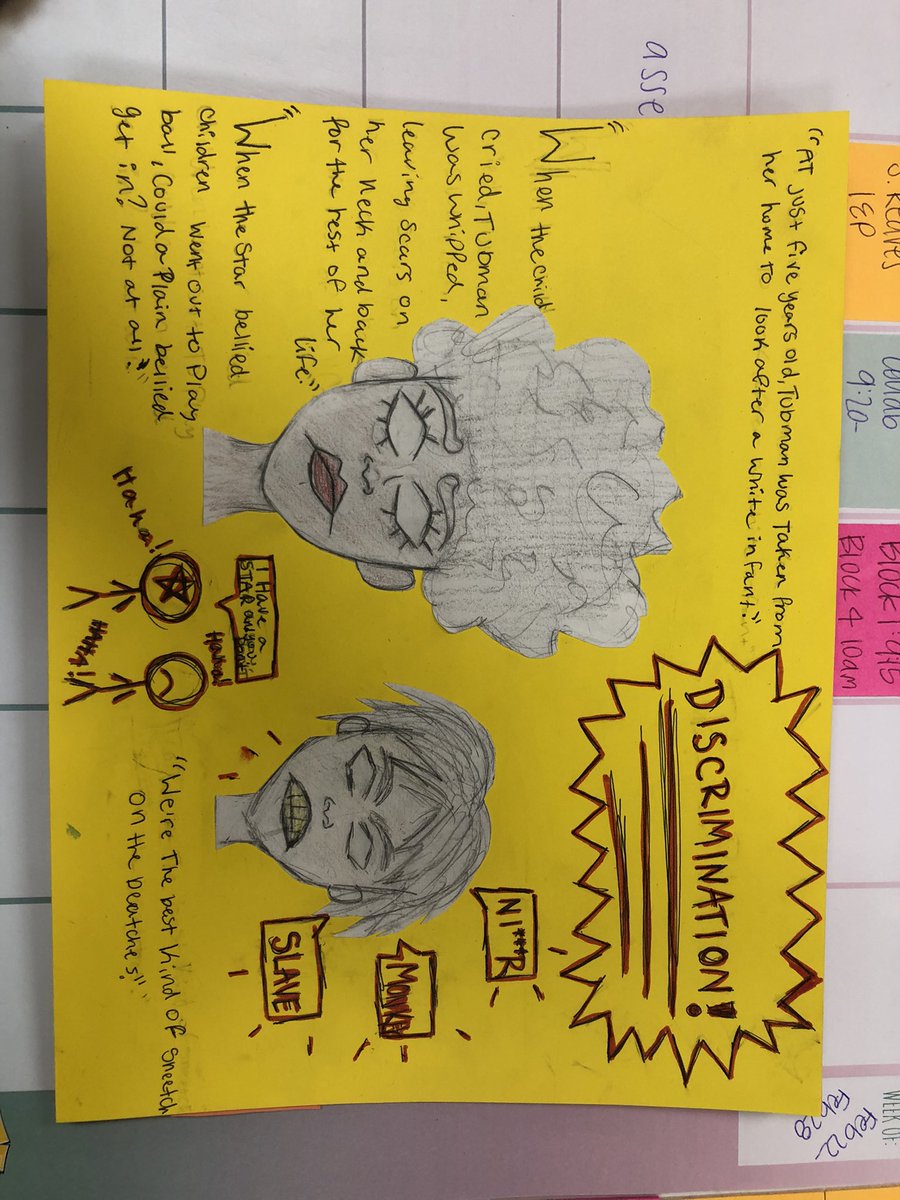 IEP
9:20-
Block 1: 9:15
Block 4 10am
WEEK OF:
Feb 22
Feb 28
asse
"AT Just five years old, Tubman was Taken from
her home to look after a white infant."
DISCRIMINATION!
"When the child
cried, Tubman
was whipped,
leaving scars on
her neck and back
for the rest of her
life."
"When the star bellied
children went out to Play
ball, Could a Plain bellied
get in? Not at all."
NI***R
SLAVE
Hahaha!
I Have a
STAR and you
Haha!
"We're The best kind of sneetch
on the beatches!"